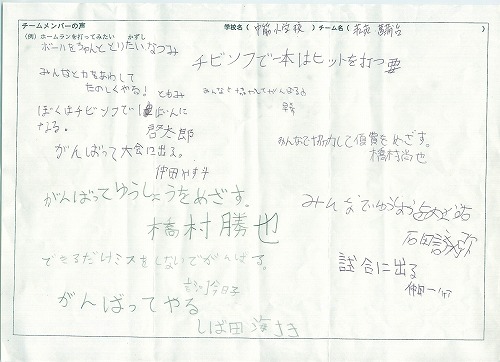 チームメンバーの声
学校名（ 小学校 ）チーム名（ ）
（例）ホームランを打ってみたい かずし
ボールをちゃんととりたいなつみ
チビソフで一本はヒットを打つ 要
みんなと力をあわして
たのしくやる! ともみ
みんなと協力してがんばる
ぼくはチビソフで1ばんに
なる。
啓太郎
みんなで協力して優賞をめざす。
橋村尚也
がんばって大会に出る。
仲田
がんばってゆうしょうをめざす。
橋村勝也
みんなでゆう
石田
できるだけミスをしないでがんばる。
試合に出る
仲田
がんばってやる
しば田